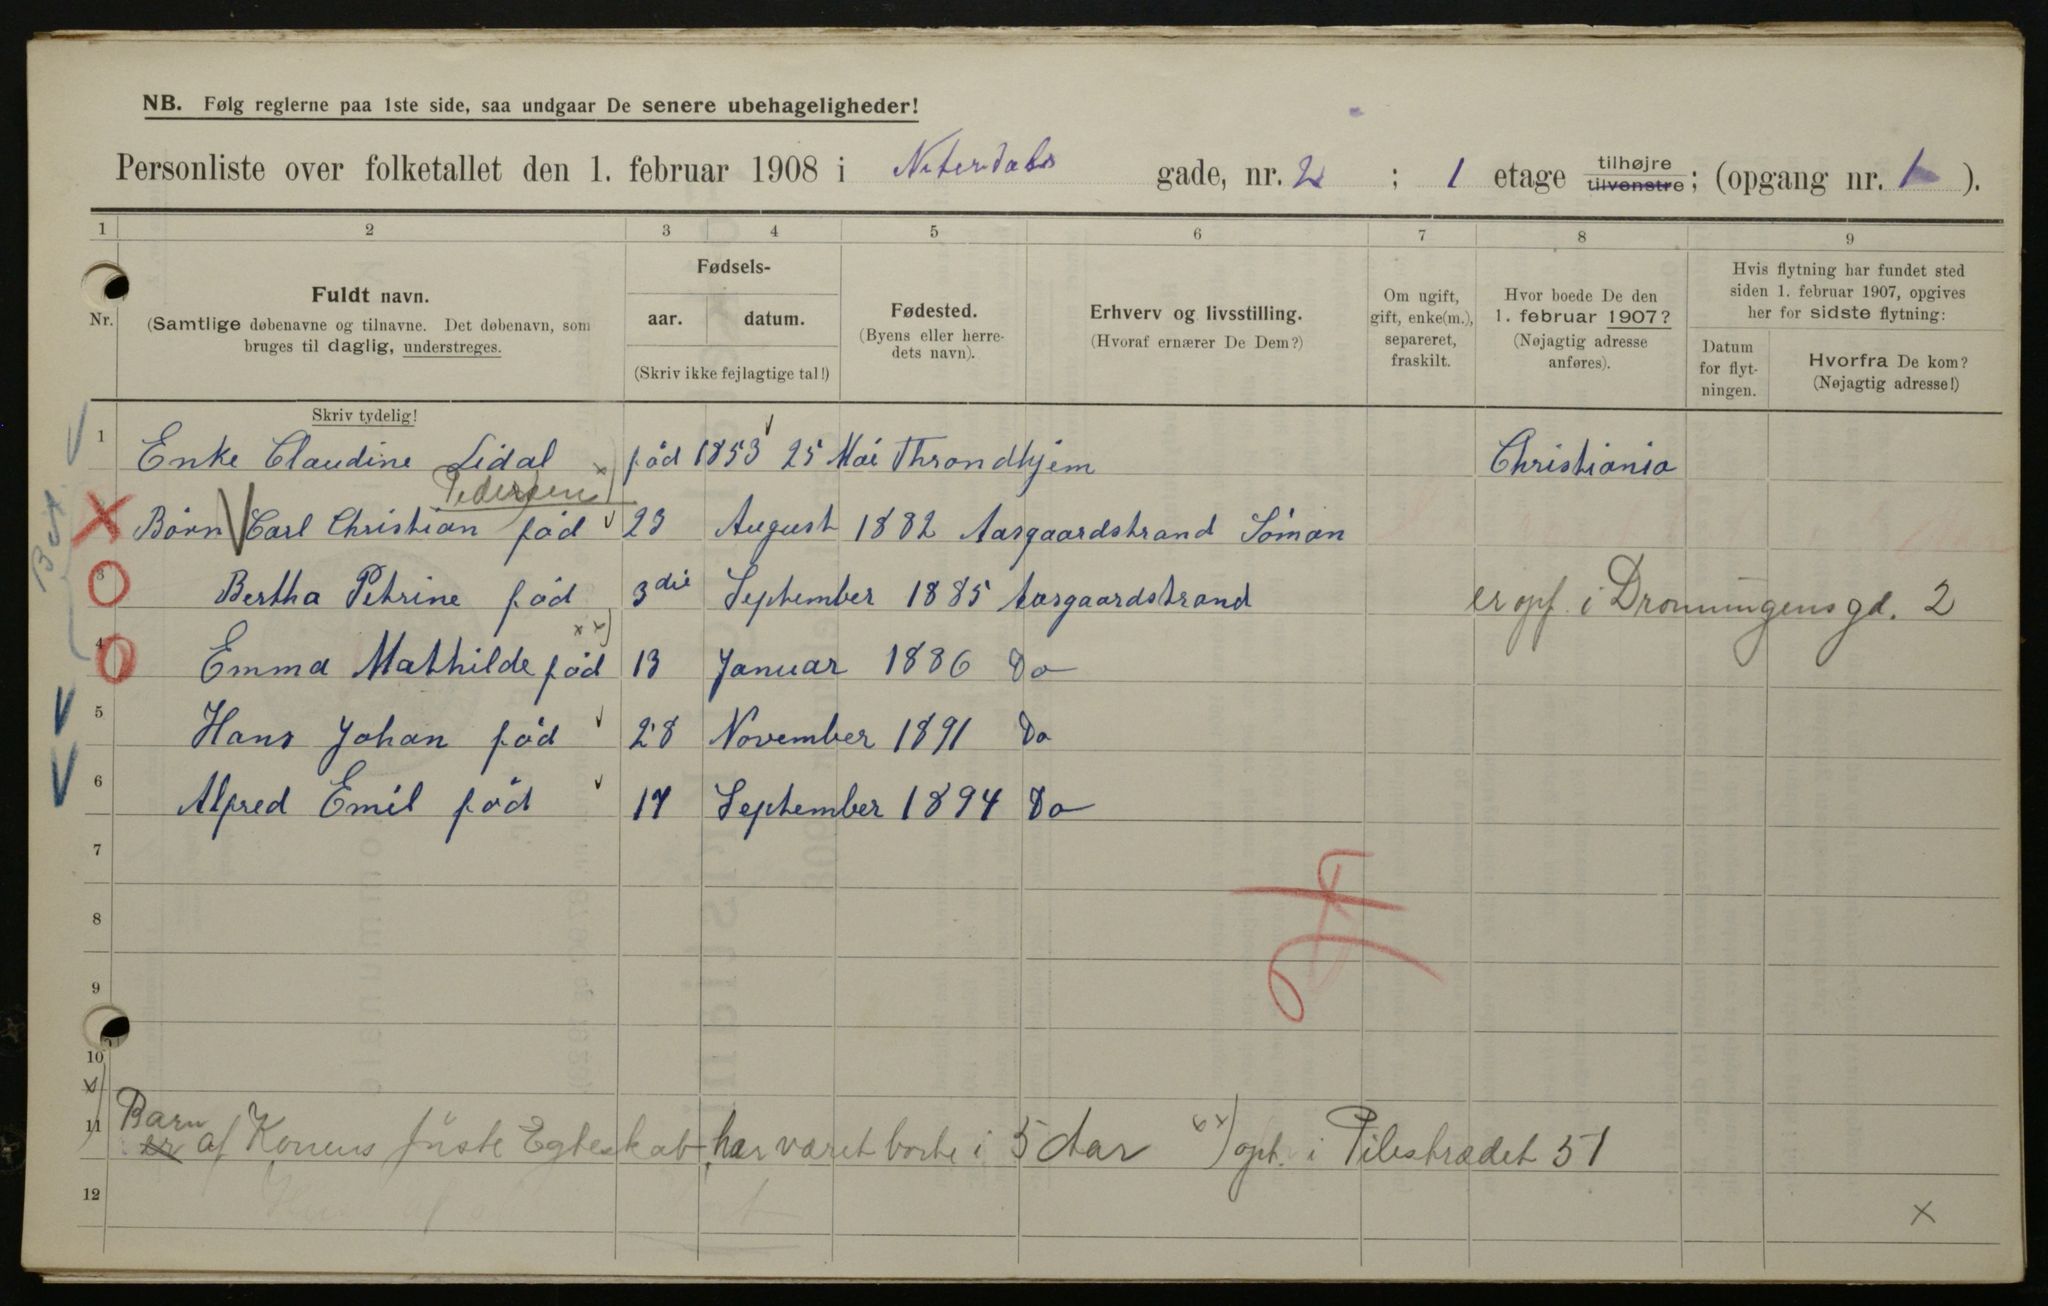 NB. Følg reglerne paa 1ste side, saa undgaar De senere ubehageligheder!
Personliste over folketallet den 1. februar 1908 i Niterdals gade, nr. 2 ; 1 etage tilhøjre tilvenstre; (opgang nr. 1 ).
1 2 3 4 5 6 7 8 9
Nr.
Fuldt navn.
(Samtlige døbenavne og tilnavne. Det døbenavn, som
bruges til daglig, understreges.
Skriv tydelig!
Fødsels-
aar. datum.
(Skriv ikke fejlagtige tal!)
Fødested.
(Byens eller herre-
dets navn).
Erhverv og livsstilling.
(Hvoraf ernærer De Dem?)
Om ugift,
gift, enke(m.),
separeret,
fraskilt.
Hvor boede De den
1. februar 1907?
(Nøjagtig adresse
anføres).
Hvis flytning har fundet sted
siden 1. februar 1907, opgives
her for sidste flytning:
Datum
for flyt-
ningen.
Hvorfra De kom?
(Nøjagtig adresse!)
1 Enke Claudine Lidal x) föd 1853 25 Mai Throndhjem Christiania
Pedersen
Börn Carl Christian föd 23 August 1882 Aasgaardstrand Söman
3 Bertha Petrine föd 3die September 1885 Aasgaardstrand er opf. i Dronningensgd. 2
xx)
4 Emma Mathilde föd 13 Januar 1886 Do
5 Hans Johan föd 28 November 1891 Do
6 Alfred Emil föd 17 September 1894 Do
7
8
9
10
x)
11 Barn
er af Konens første Egteskab, har været borte i 5 Aar xx) opf. i Pilestrædet 51
12
x